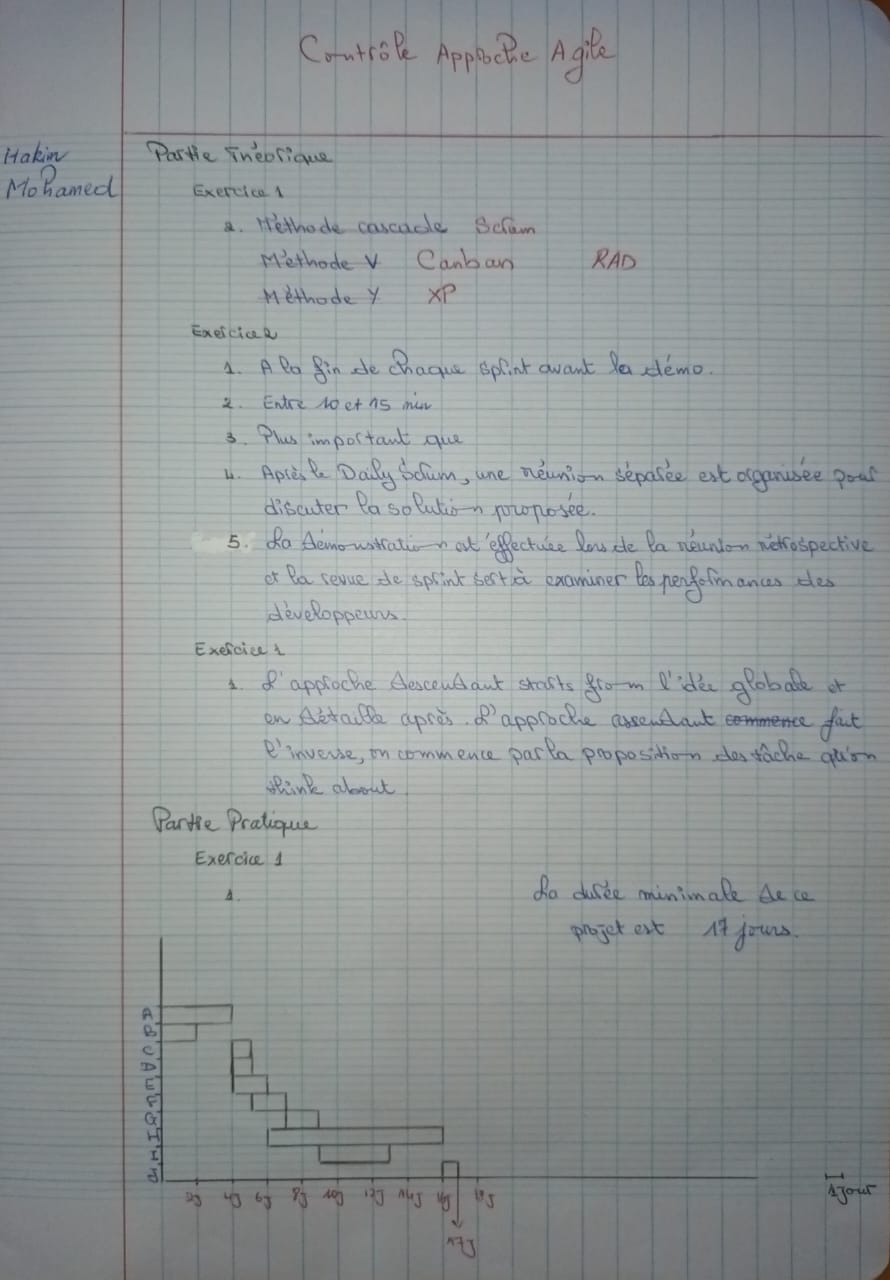 Contrôle Approche Agile
Hakim
Mohamed
Partie Théorique
Exercice 1
2. Méthode cascade Scrum
Méthode V Canban RAD
Méthode Y XP
Exercice 2
1. A la fin de chaque sprint avant la démo.
2. Entre 10 et 15 min
3. Plus important que
4. Après le Daily Scrum, une réunion séparée est organisée pour
discuter la solution proposée.
5. La démonstration est effectuée lors de la réunion rétrospective
et la revue de sprint sert à examiner les performances des
développeurs.
Exercice 1
1. L'approche descendant starts from l'idée globale et
en détaille après. L'approche assendant commence fait
l'inverse, on commence par la proposition des tâche qu'on
think about.
Partie Pratique
Exercice 1
1.
La durée minimale de ce
projet est 17 jours.
A
B
C
D
E
F
G
I
H
2J 4J 6J 8J 10J 12J 14J 16J 18J
1 Jour
17J